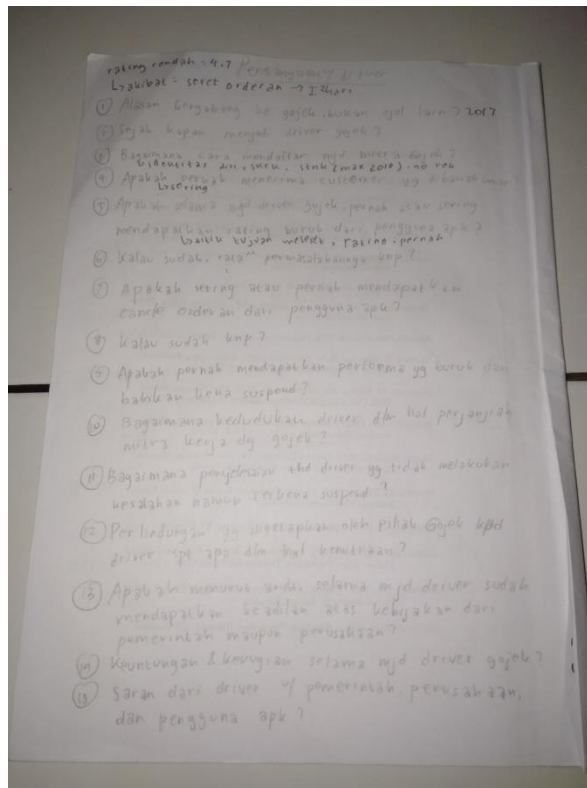 rating rendah = 4.7 Pertanyaan² driver
↳ akibat = seret orderan → 12 hari
① Alasan bergabung ke gojek, bukan ojol lain? 2017
② Sejak kapan menjadi driver gojek?
③ Bagaimana cara mendaftar mjd mitra gojek?
↳ identitas diri, skck, stnk (max 2010), no rek
④ Apakah pernah menerima customer yg dibatalkan
↳ sering
⑤ Apakah selama mjd driver gojek, pernah atau sering
mendapatkan rating buruk dari pengguna apk?
tujuan meleset, rating, pernah
⑥ Kalau sudah, rata" permasalahannya knp?
⑦ Apakah sering atau pernah mendapatkan
cancle orderan dari pengguna apk?
⑧ Kalau sudah knp?
⑨ Apakah pernah mendapatkan performa yg buruk dan
bahkan kena suspend?
⑩ Bagaimana kedudukan driver dlm hal perjanjian
mitra kerja dg gojek?
⑪ Bagaimana penyelesaian thd driver yg tidak melakukan
kesalahan namun terkena suspend?
⑫ Perlindungan yg diterapkan oleh pihak Gojek kpd
driver spt apa dlm hal kemitraan?
⑬ Apakah menurut anda, selama mjd driver sudah
mendapatkan keadilan atas kebijakan dari
pemerintah maupun perusahaan?
⑭ Keuntungan & kerugian selama mjd driver gojek?
⑮ Saran dari driver u/ pemerintah, perusahaan,
dan pengguna apk?